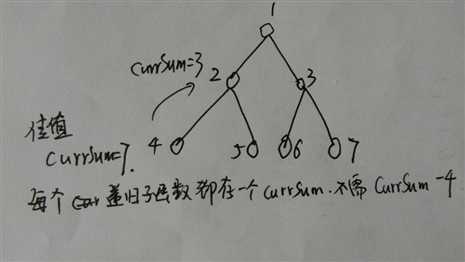 1
currSum=3
2
3
佳值
currSum=7.
4
5
6
7
每个 递归子函数都存一个 currSum.不需 CurrSum-4